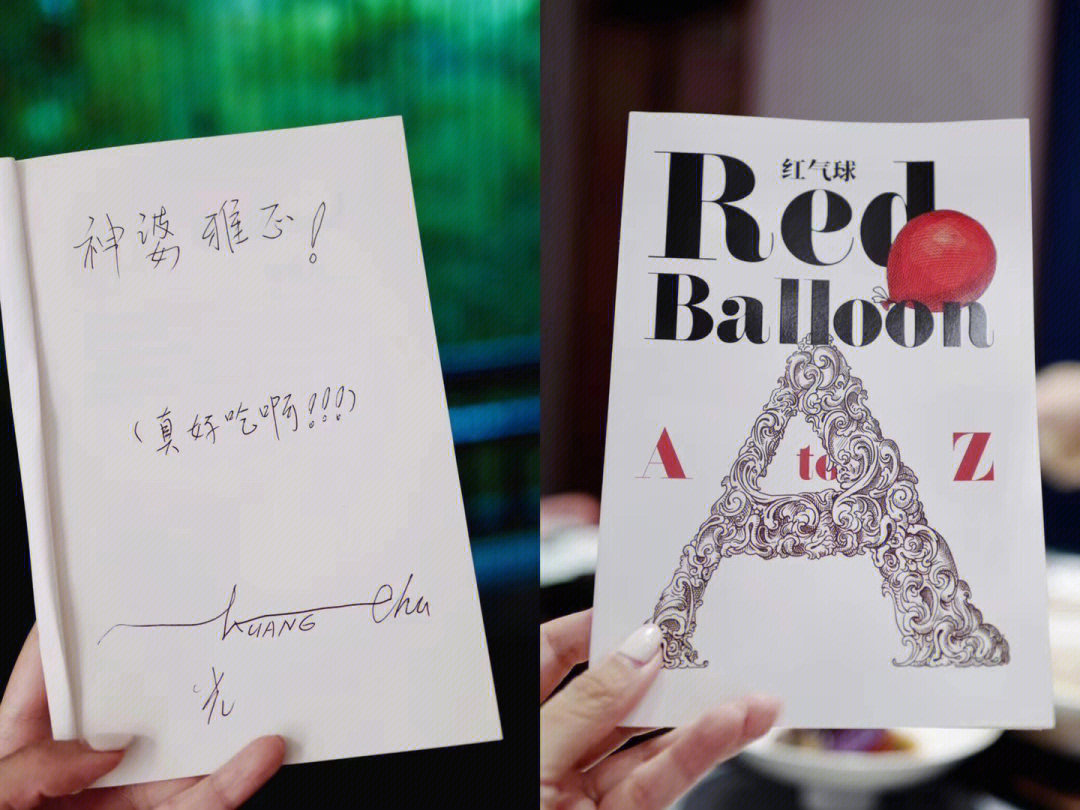 神婆 雅正！
（真好吃啊!!!!）
KUANG Chu
光
红气球
Red
Balloon
A to Z